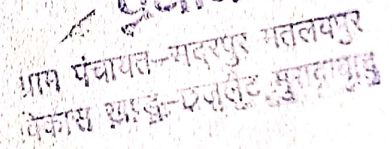 ग्राम पंचायत-सदरपुर मतलबपुर
विकास खण्ड-छजलैट मुरादाबाद